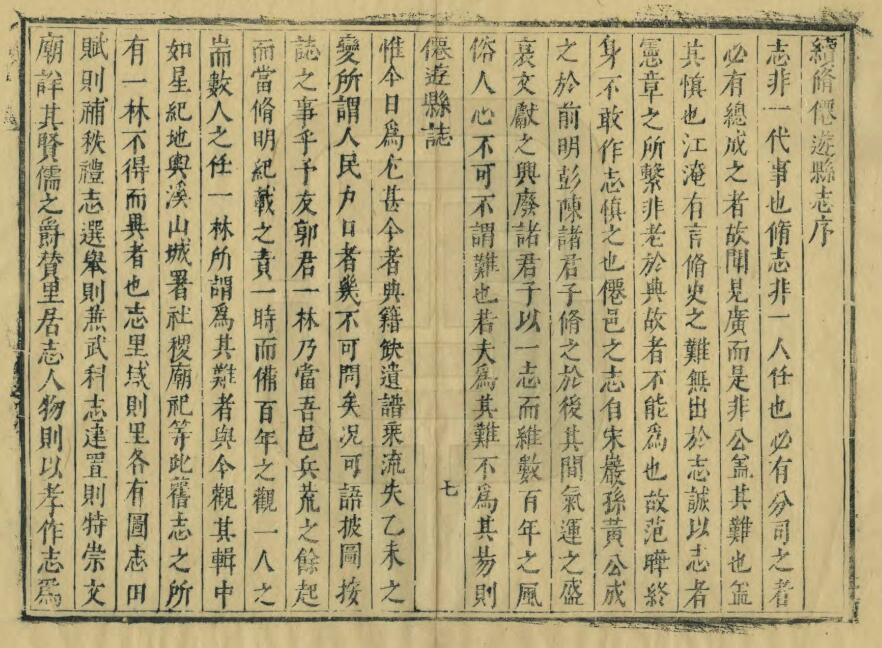 續脩僊遊縣志序
志非一代事也脩志非一人任也必有分司之者
必有總成之者故聞見廣而是非公盖其難也盖
其慎也江淹有言脩史之難無出於志誠以志者
憲章之所繫非老於典故者不能爲也故范曄終
身不敢作志慎之也僊邑之志自宋巖孫黃公成
之於前明彭陳諸君子脩之於後其間氣運之盛
衰文獻之興廢諸君子以一志而維數百年之風
俗人心不可不謂難也若夫爲其難不爲其易則
僊遊縣誌
七
惟今日爲尤甚今者典籍缺遺譜乗流失乙未之
變所謂人民户口者幾不可問矣况可語披圖按
誌之事乎予友郭君一林乃當吾邑兵荒之餘起
而當脩明紀載之責一時而備百年之觀一人之
耑數人之任一林所謂爲其難者與今觀其輯中
如星紀地輿溪山城署社稷廟祀等此舊志之所
有一林不得而異者也志里域則里各有圖志田
賦則補秩禮志選舉則燕武科志建置則特崇文
廟詳其賢儒之爵賛里居志人物則以孝作志爲